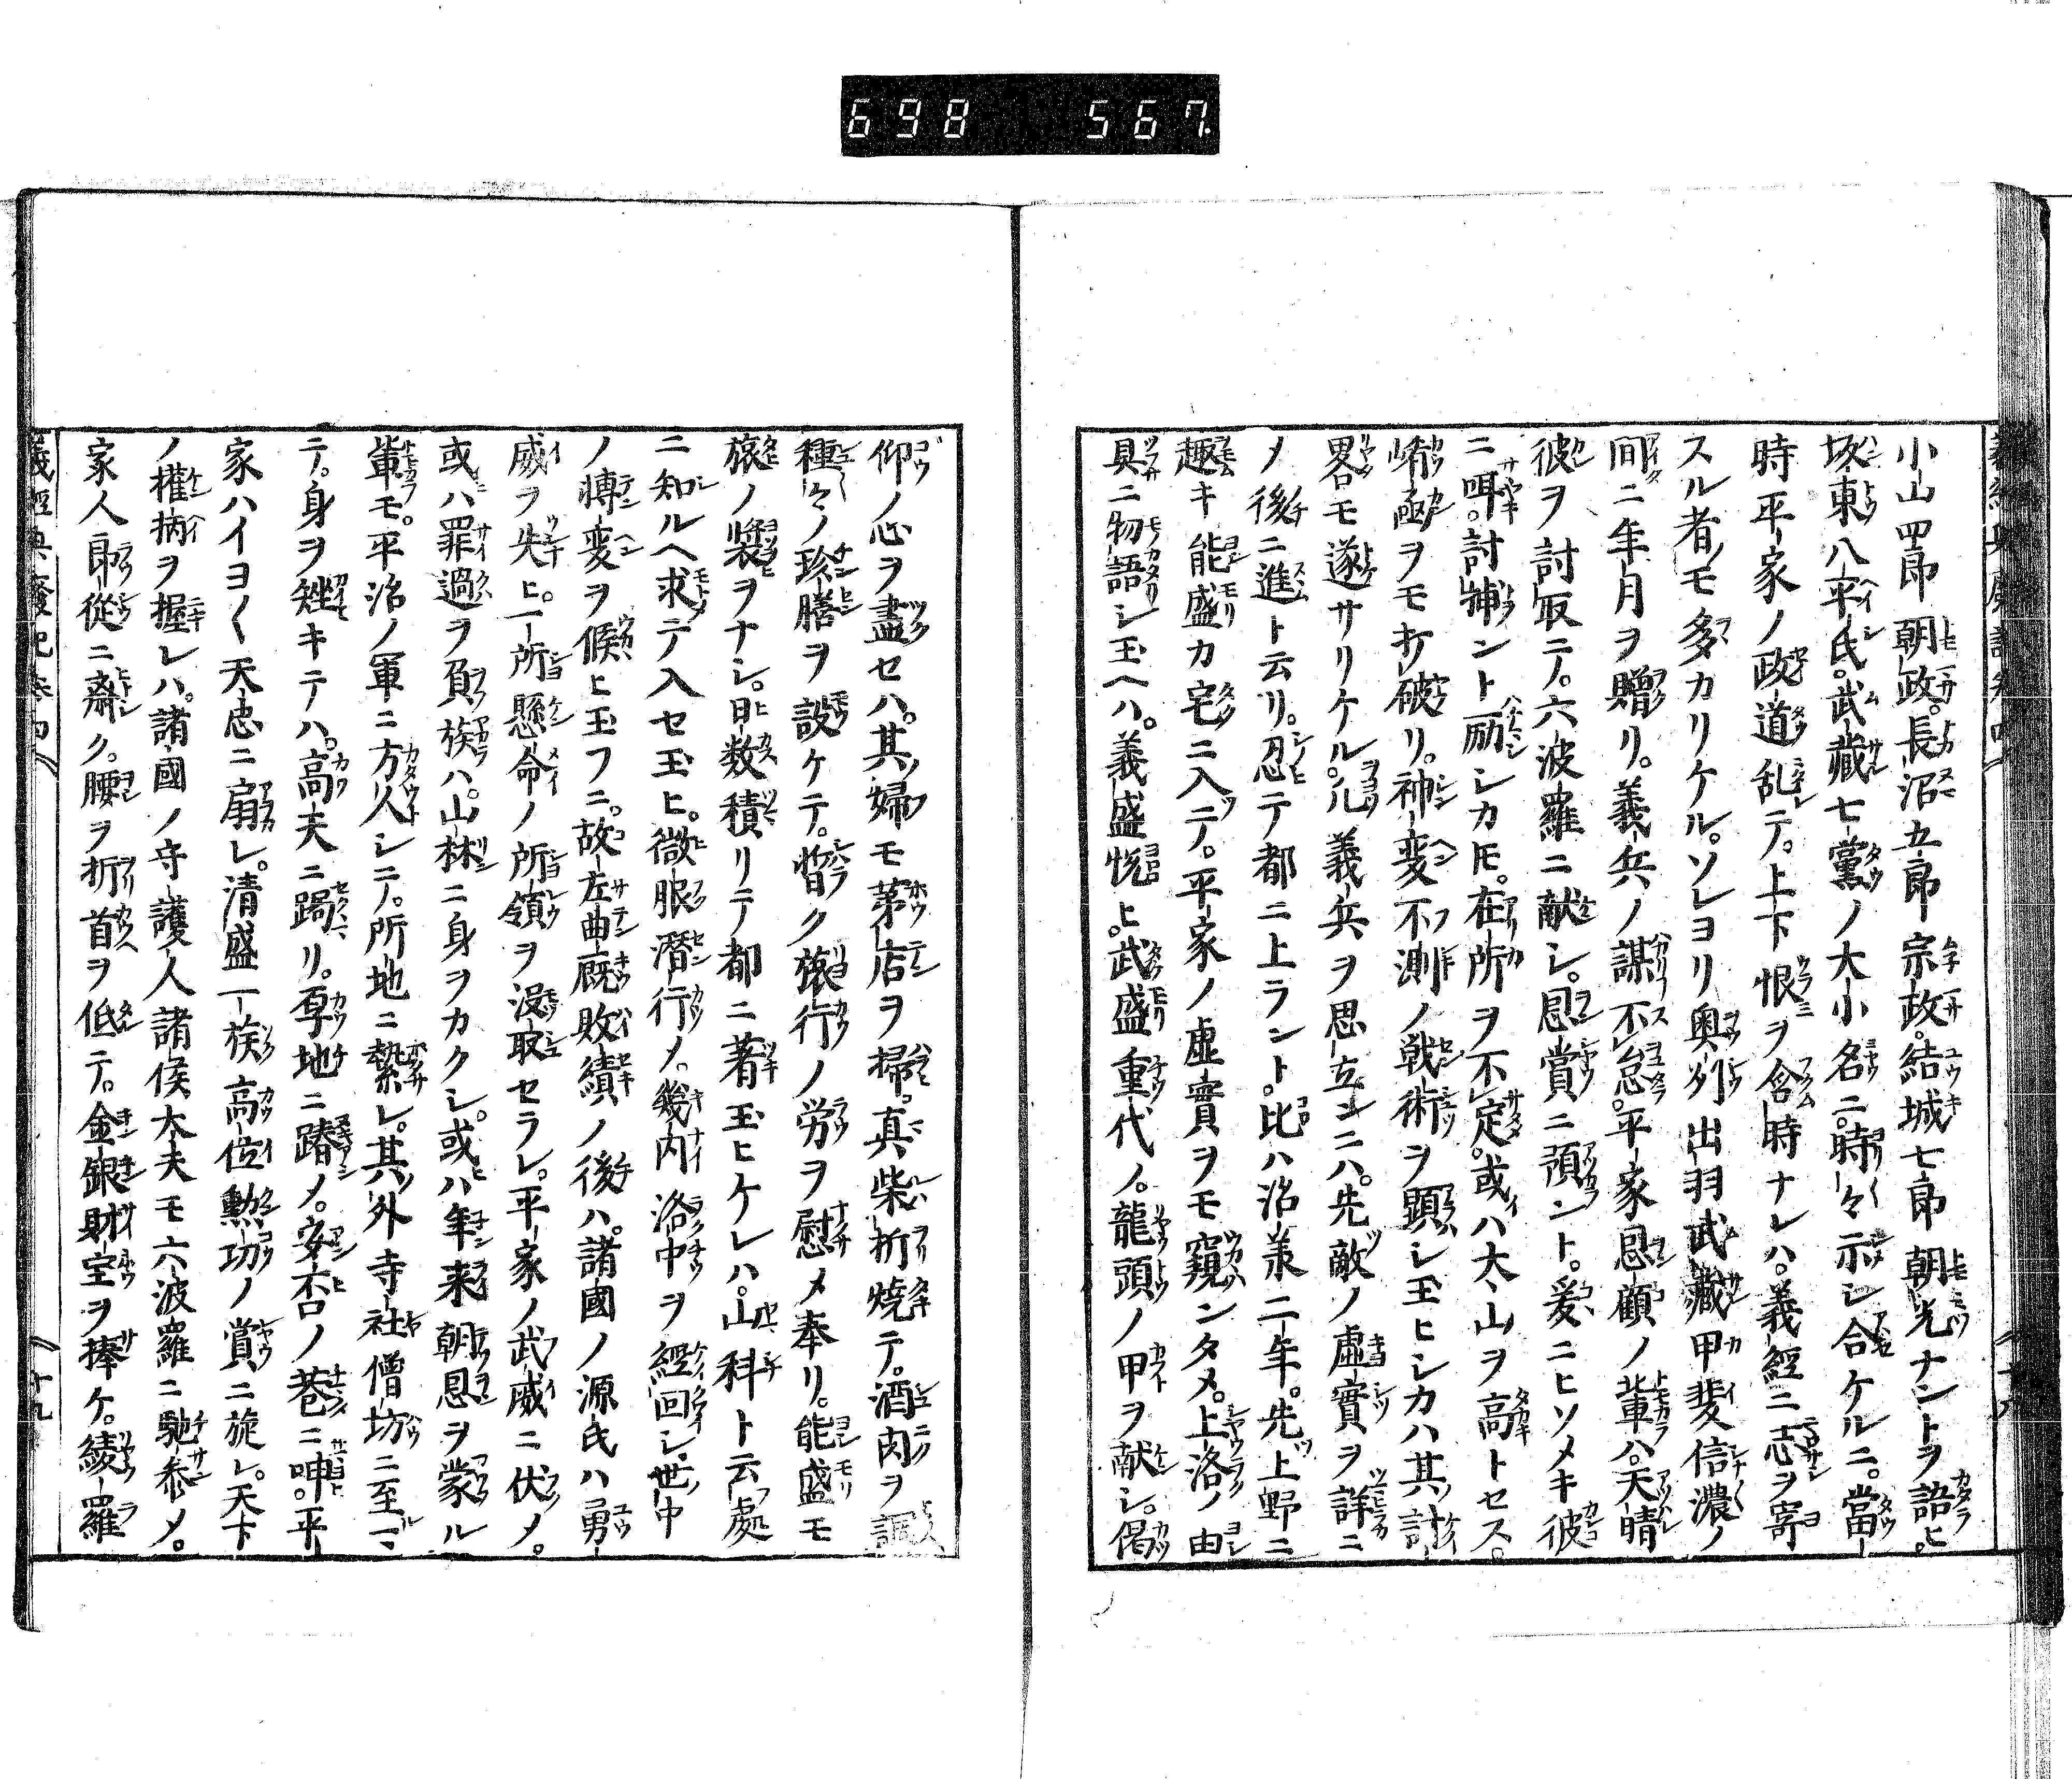 698 567.
小山四郎朝政。長沼五郎宗政。結城七郎朝光ナントヲ語ヒ。
坂東八平氏。武藏七黨ノ大小名ニ。時々示シ合ケルニ。當
時平家ノ政道乱テ。上下恨ヲ含時ナレハ。義經ニ志ヲ寄
スル者モ多カリケル。ソレヨリ奥州出羽武藏甲斐信濃ノ
間ニ年月ヲ贈リ。義兵ノ謀不怠。平家恩顧ノ輩ハ。天晴
彼ヲ討取テ。六波羅ニ献シ。恩賞ニ預ント。爰ニヒソメキ彼
ニ咡。討捕ント励シカ𪜈。在所ヲ不定。或ハ大山ヲ高トセス。
ヲモ打破リ。神変不測ノ戦術ヲ顕シ玉ヒシカハ其計
畧モ遂サリケル。凡義兵ヲ思立ンニハ。先敵ノ虚實ヲ詳ニ
メ後ニ進ト云リ。忍テ都ニ上ラント。比ハ治羕二年。先上野ニ
趣キ能盛カ宅ニ入テ。平家ノ虚實ヲモ窺ンタメ。上洛ノ由
具ニ物語シ玉ヘハ。義盛悦ヒ。武盛重代ノ。龍頭ノ甲ヲ献シ。偈
仰ノ心ヲ盡セハ。其婦モ茅店ヲ掃。真柴折焼テ。酒肉ヲ調
種々ノ珍膳ヲ設ケテ。暫ク旅行ノ労ヲ慰メ奉リ。能盛モ
旅ノ裝ヲナシ。日数積リテ都ニ著玉ヒケレハ。山科ト云處
ニ知ルヘ求テ入セ玉ヒ。微服潜行メ。幾内洛中ヲ經回シ。世中
ノ轉変ヲ候ヒ玉フニ。故左典厩敗績ノ後ハ。諸國ノ源氏ハ勇
威ヲ失ヒ。一所懸命ノ所領ヲ没取セラレ。平家ノ武威ニ伏メ。
或ハ罪過ヲ負族ハ。山林ニ身ヲカクシ。或ハ年来朝恩ヲ蒙ル
輩モ。平治ノ軍ニ方人シニテ。所地ニ縶レ。其外寺社僧坊ニ至マ
テ。身ヲ矬キテハ。高天ニ跼リ。厚地ニ蹐メ。安否ノ巷ニ呻。平
家ハイヨ〱天忠ニ扇レ。清盛一族高位勲功ノ賞ニ旋レ。天下
ノ權柄ヲ握レハ。諸國ノ守護人諸侯大夫モ六波羅ニ馳参メ。
家人郎從ニ齊ク。腰ヲ折首ヲ低テ。金銀財宝ヲ捧ケ。綾羅
十九